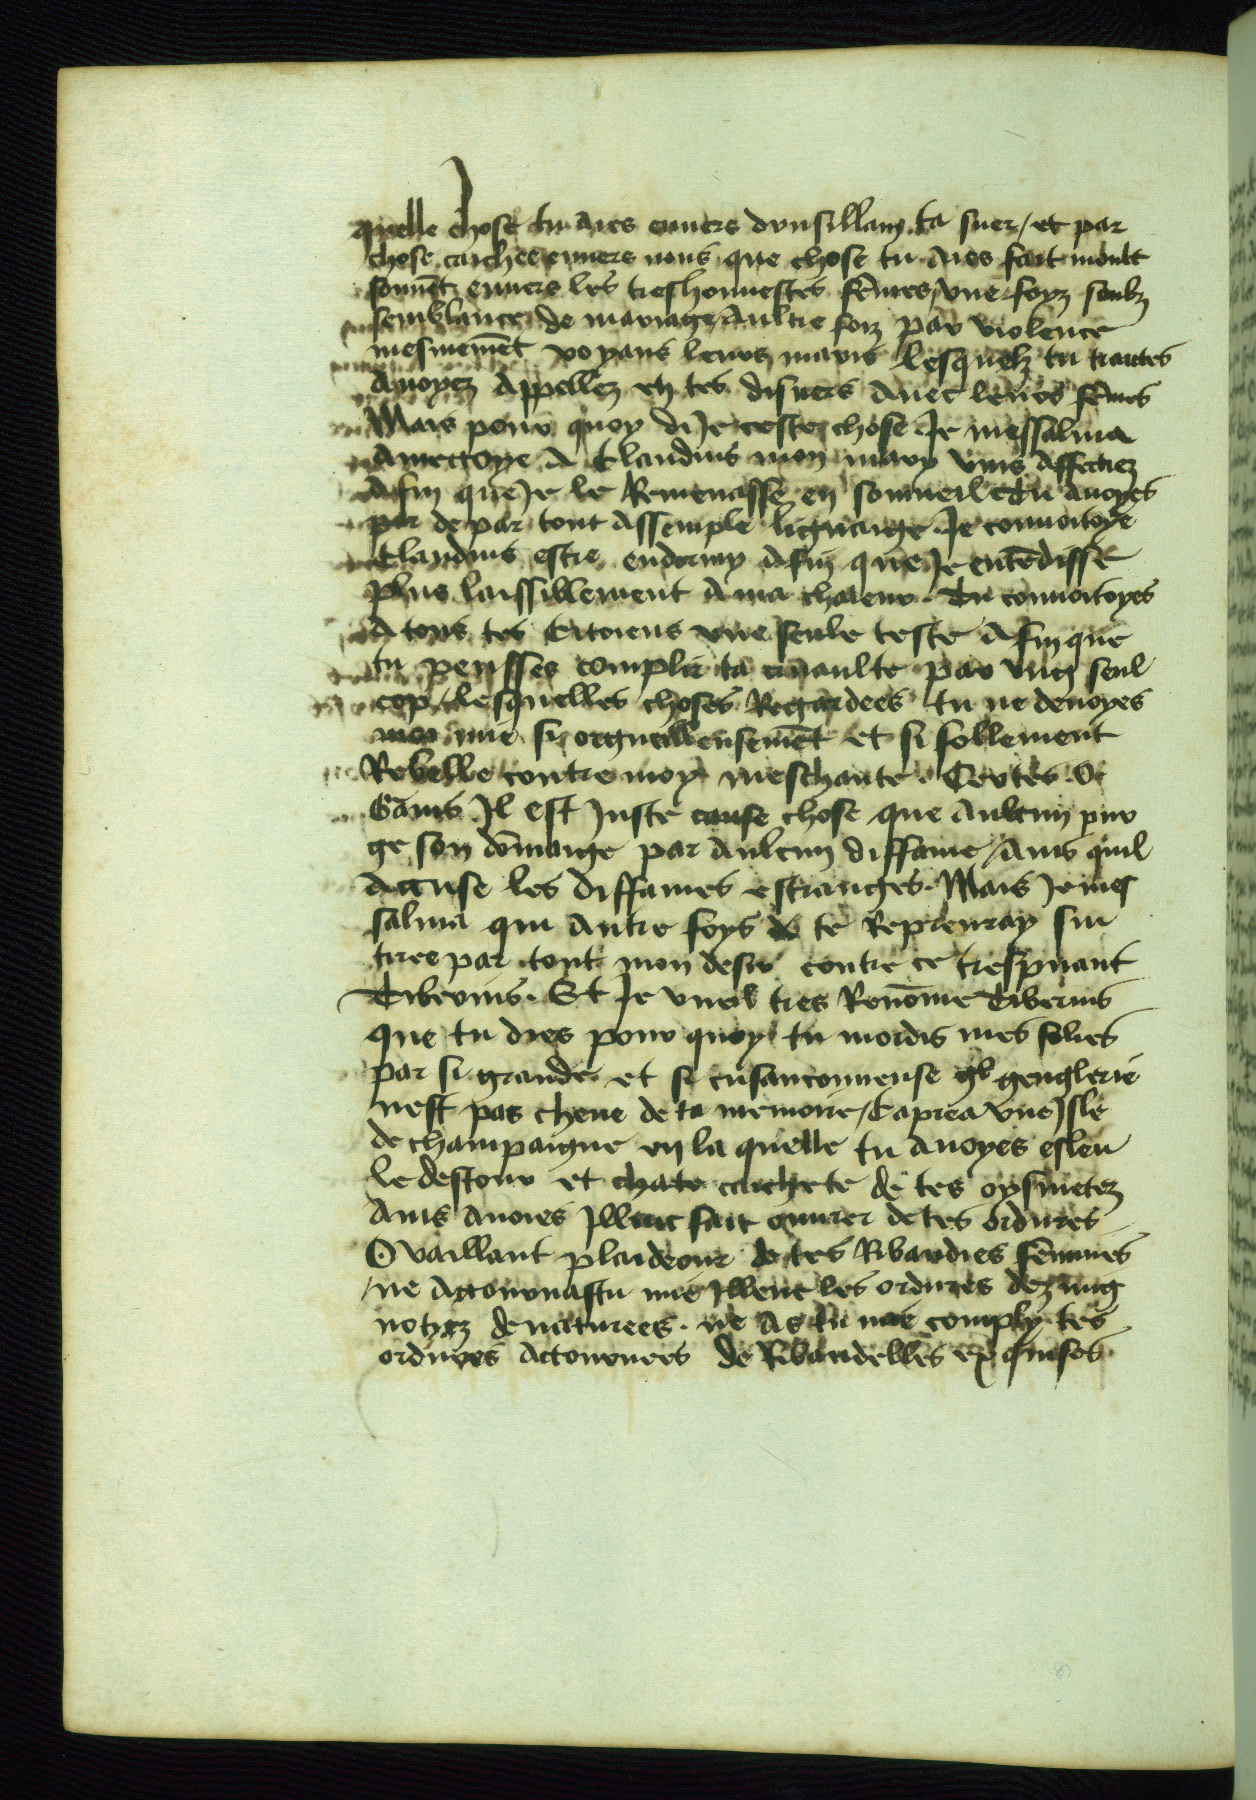 quelle chose tu aies enuers drusillam ta suer / et par
chose cachee enuers nous que chose tu aies fait moult
souuēt enuers les treshonnestes fēmes / vne foyz soubz
semblance de mariage / Aultre foiz par violence
mesmemēt voyans leurs maris lesquelz tu traites
Auoyez Appellez en tes disners Auec leurs fēmes
Mais pour quoy di Je ceste chose Je messalina
A Claudius mon mary vins
Afin que Je le Remenasse en sommeil et tu Auoyes
par de par tout Assemple lignaige Je conuoitoye
Claudius estre endormy Afin que Je entēdisse
plus laissiblement A ma chaleur . Tu conuoitoyes
A tous tes Citoiens vne seule teste Afin que
tu peusses complir ta cruaulte par vng seul
cop / lesquelles choses Regardees tu ne deuoyes
mie si orgueilleusemēt et si follement
Rebelle contre moy meschante . Certes O
Gaius Il est Juste cause chose que Aulcun pur
ge son dōmaige par Aulcun diffame / Ains quil
Accuse les diffames estranges . Mais Je mes
salina qui Autre foys te Reprenray sui
tiree par tout mon desir contre ce trespuant
Tiberius . Et Je vueil tres Renōme Tiberius
que tu dies pour quoy tu mordis mes folies
par si grande et si genglerie
nest pas cheue de ta memoire / Caprea vne Isle
de champaigne en la quelle tu Auoyes esleu
le destour et cachete de tes oysiuetez
Ains Auoies Illeuc fait ouurer de tes ordures
O vaillant plaideour de tes Ribaudies fēmines
/ ne Actournastu mie Illeuc les ordures dez
denaturees . ne As tu mie comply tes
ordures Actournees de Ribaudelles exquises